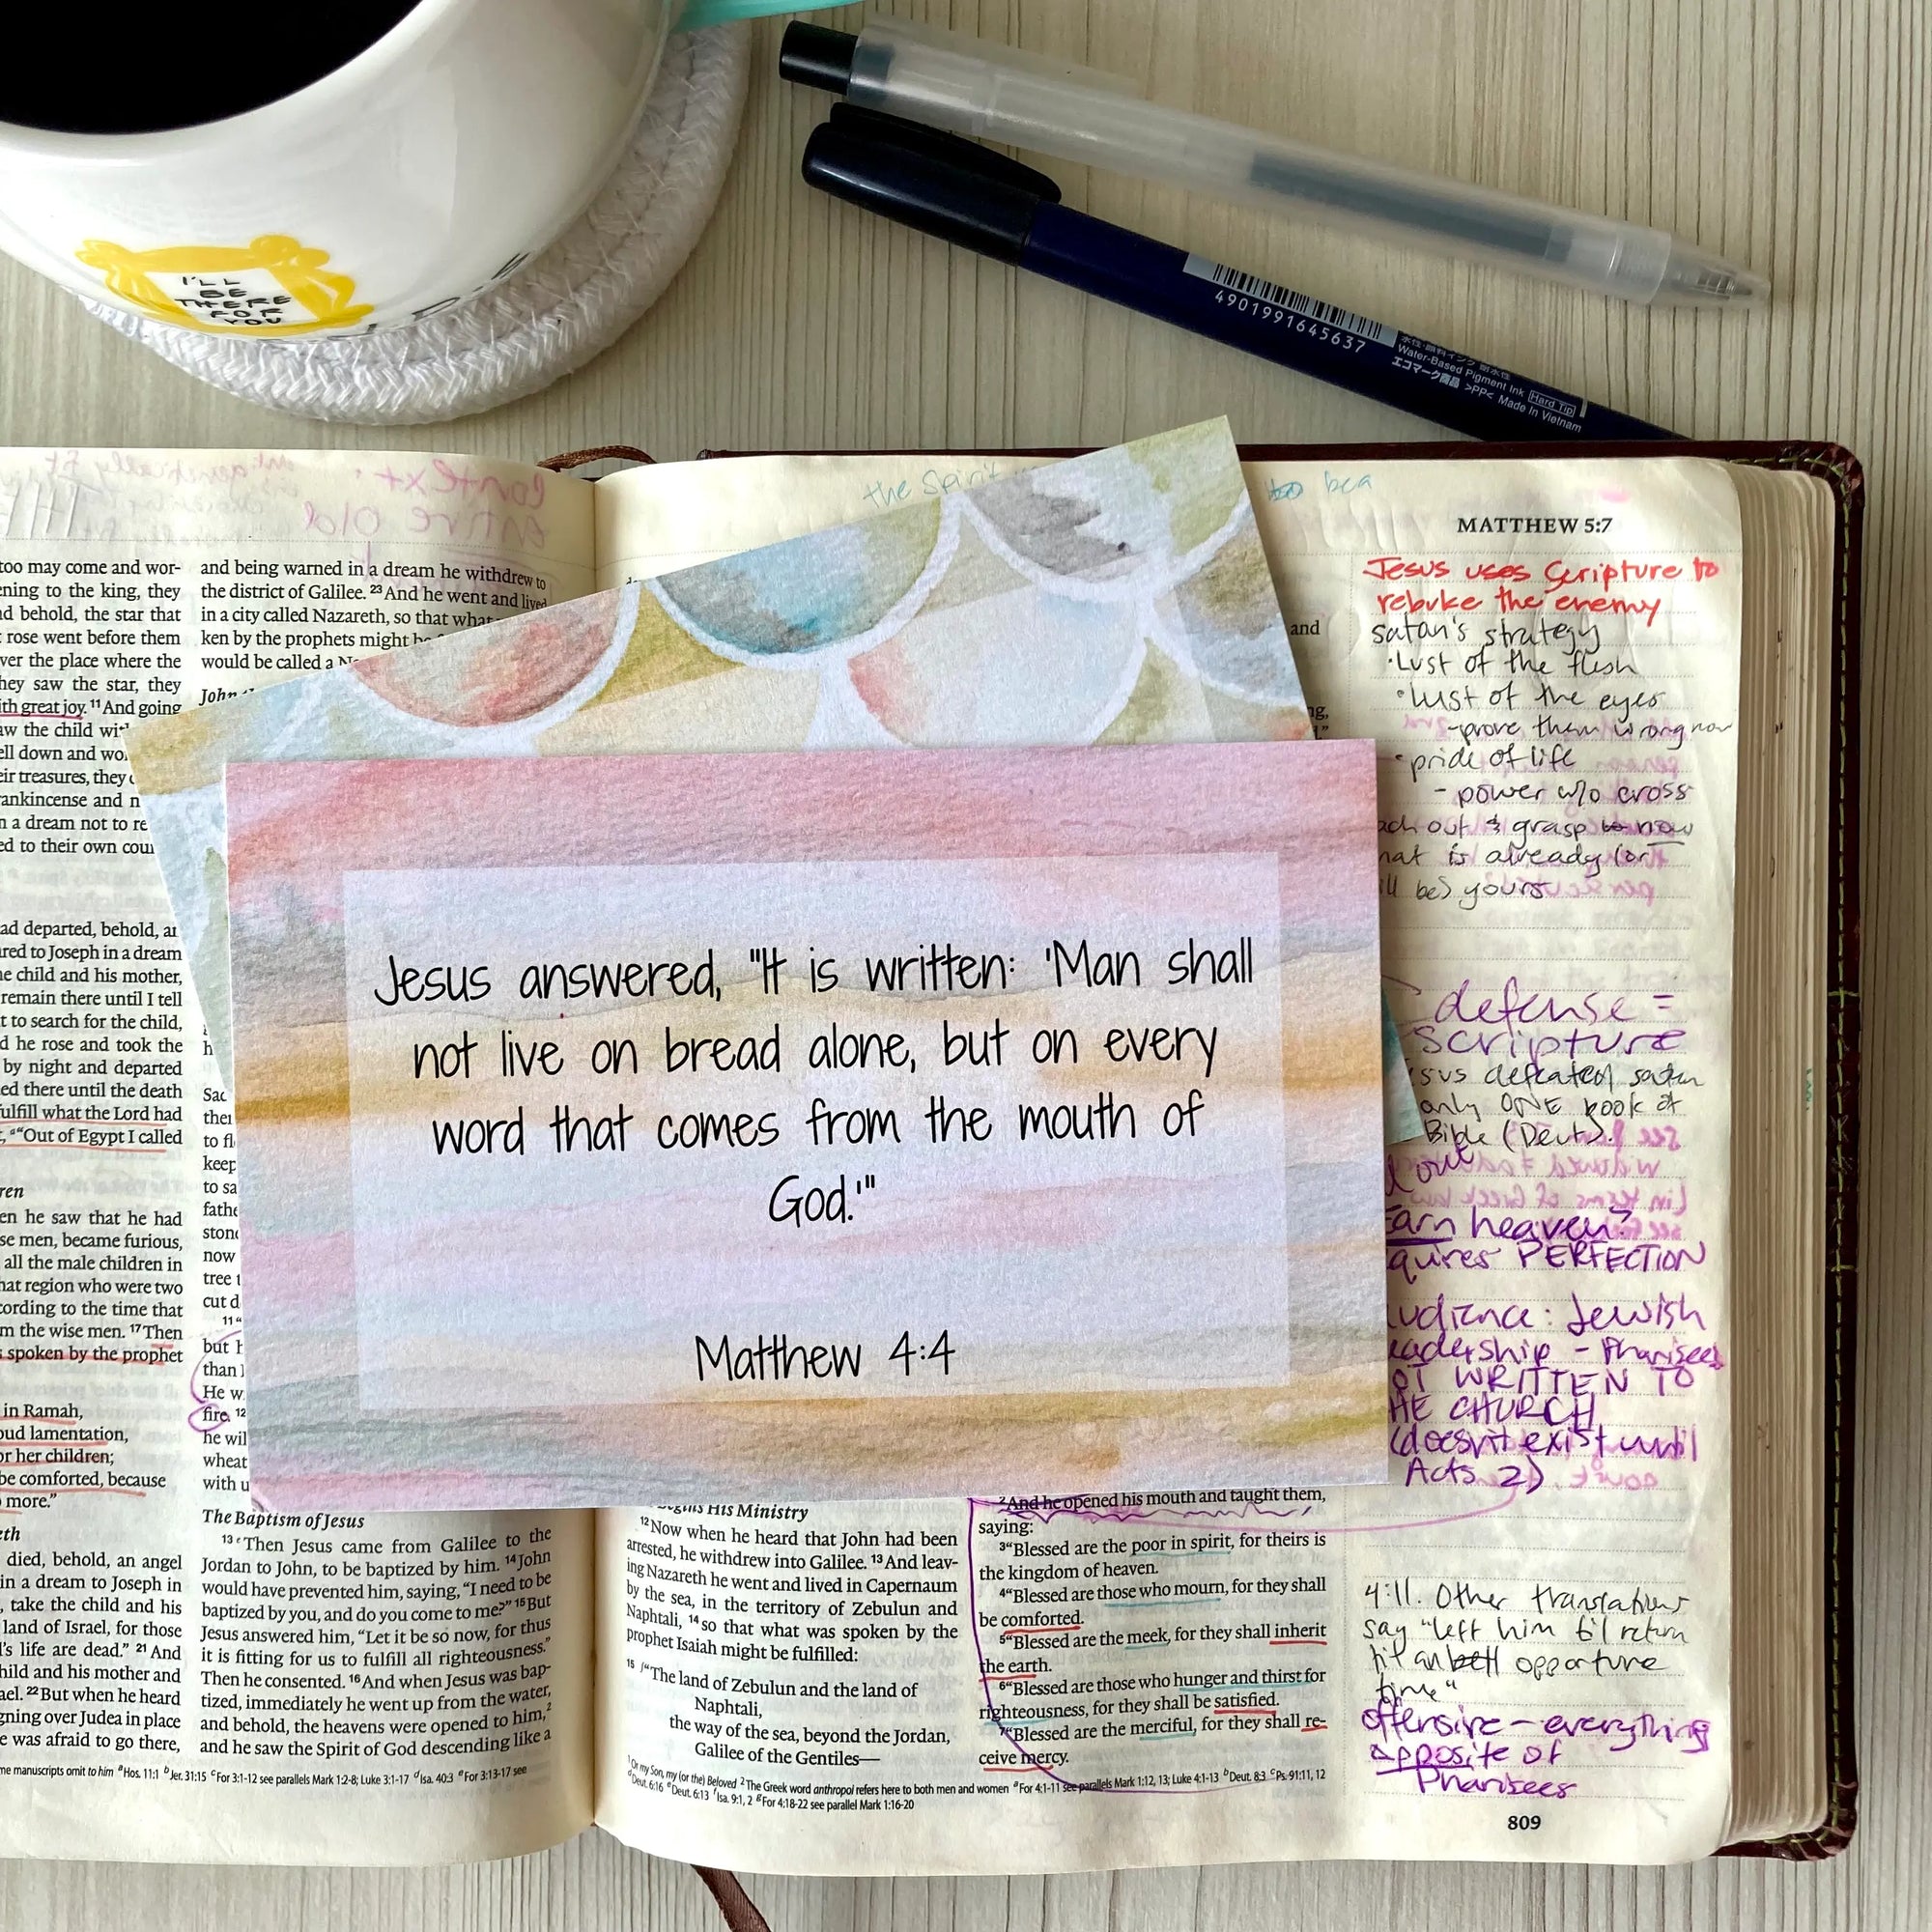 I'LL
BE
THERE
FOR
YOU
4901991645637
Water-Based Pigment Ink Hard Tip
エコマーク商品 >PP< Made in Vietnam
the Spirit
MATTHEW 5:7
too may come and wor-
ning to the king, they
d behold, the star that
rose went before them
ver the place where the
hey saw the star, they
ith great joy. 11 And going
aw the child
ell down and
eir treasures, they
ankincense and
n a dream not to
ed to their own
ad departed, behold,
red to Joseph in a dream
he child and his mother,
remain there until I tell
t to search for the child,
d he rose and took the
by night and departed
ed there until the death
ulfill what the Lord had
"Out of Egypt I called
ren
en he saw that he had
se men, became furious,
all the male children in
hat region who were two
cording to the time that
m the wise men. 17 Then
s spoken by the prophet
in Ramah,
oud lamentation,
or her children;
be comforted, because
more."
eth
died, behold, an angel
in a dream to Joseph in
, take the child and his
land of Israel, for those
d's life are dead." 21 And
hild and his mother and
ael. 22 But when he heard
gning over Judea in place
e was afraid to go there,
and being warned in a dream he withdrew to
the district of Galilee. 23 And he went and lived
in a city called Nazareth, so that what
ken by the prophets might
would be called a
John
Sac
to fl
keep
to sa
fathe
stone
now
tree
cut d
11 "
but
than
He w
fire. 12
he wil
wheat
with
The Baptism of Jesus
13 Then Jesus came from Galilee to the
Jordan to John, to be baptized by him. 14 John
would have prevented him, saying, "I need to be
baptized by you, and do you come to me?" 15 But
Jesus answered him, "Let it be so now, for thus
it is fitting for us to fulfill all righteousness."
Then he consented. 16 And when Jesus was bap-
tized, immediately he went up from the water,
and behold, the heavens were opened to him,2
and he saw the Spirit of God descending like a
me manuscripts omit to him a Hos. 11:1 b Jer. 31:15 c For 3:1-12 see parallels Mark 1:2-8; Luke 3:1-17 d Isa. 40:3 e For 3:13-17 see
Jesus answered, "It is written: 'Man shall
not live on bread alone, but on every
word that comes from the mouth of
God.'"
Matthew 4:4
Begins His Ministry
12 Now when he heard that John had been
arrested, he withdrew into Galilee. 13 And leav-
ing Nazareth he went and lived in Capernaum
by the sea, in the territory of Zebulun and
Naphtali, 14 so that what was spoken by the
prophet Isaiah might be fulfilled:
15 f "The land of Zebulun and the land of
Naphtali,
the way of the sea, beyond the Jordan,
Galilee of the Gentiles—
and
2 And he opened his mouth and taught them,
saying:
3 "Blessed are the poor in spirit, for theirs is
the kingdom of heaven.
4 "Blessed are those who mourn, for they shall
be comforted.
5 "Blessed are the meek, for they shall inherit
the earth.
6 "Blessed are those who hunger and thirst for
righteousness, for they shall be satisfied.
7 "Blessed are the merciful, for they shall re-
ceive mercy.
1 Or my Son, my (or the) Beloved 2 The Greek word anthropoi refers here to both men and women a For 4:1-11 see parallels Mark 1:12, 13; Luke 4:1-13 b Deut. 8:3 c Ps. 91:11, 12
d Deut. 6:16 e Deut. 6:13 f Isa. 9:1, 2 g For 4:18-22 see parallel Mark 1:16-20
Jesus uses Scripture to
rebuke the enemy
satan's strategy
·Lust of the flesh
·lust of the eyes
-prove them wrong now
·pride of life
- power w/o cross
ach out & grasp to now
hat is already (or
ill be) yours
defense =
Scripture
sus defeated satan
only ONE book of
Bible (Deut).
out
Earn heaven?
quires PERFECTION
udience: Jewish
eadership - Pharisees
OT WRITTEN TO
HE CHURCH
(doesn't exist until
Acts 2)
4:11. Other translations
say "left him til return
opportune
time"
offensive - everything
opposite of
Pharisees
809